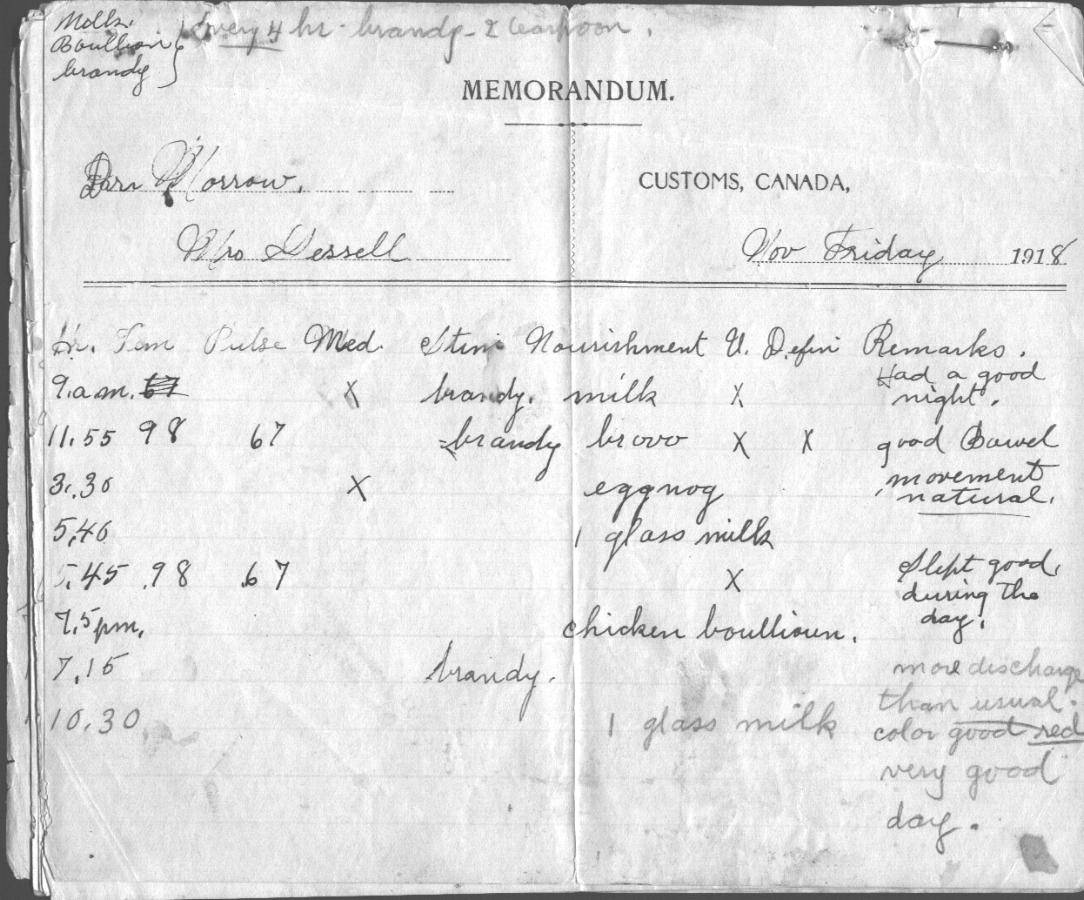 Milk.
Boullion
brandy
every 4 hr - brandy - 2 teaspoon.
MEMORANDUM.
Morrow.
CUSTOMS, CANADA,
Mrs Dessell
Nov Friday 1918
Hr. Tem Pulse Med. Stim Nourishment U. Defin Remarks.
9. a.m. X brandy. milk X Had a good
night.
11.55 98 67 brandy brovo X X good Bawel
3.30 X eggnog movement
natural.
5,40 1 glass milk
5.45 98 67 X Slept good,
during the
7.5 pm. chicken boullioun. day.
7.15 brandy. more discharge
than usual.
10.30 1 glass milk color good red
very good
day.